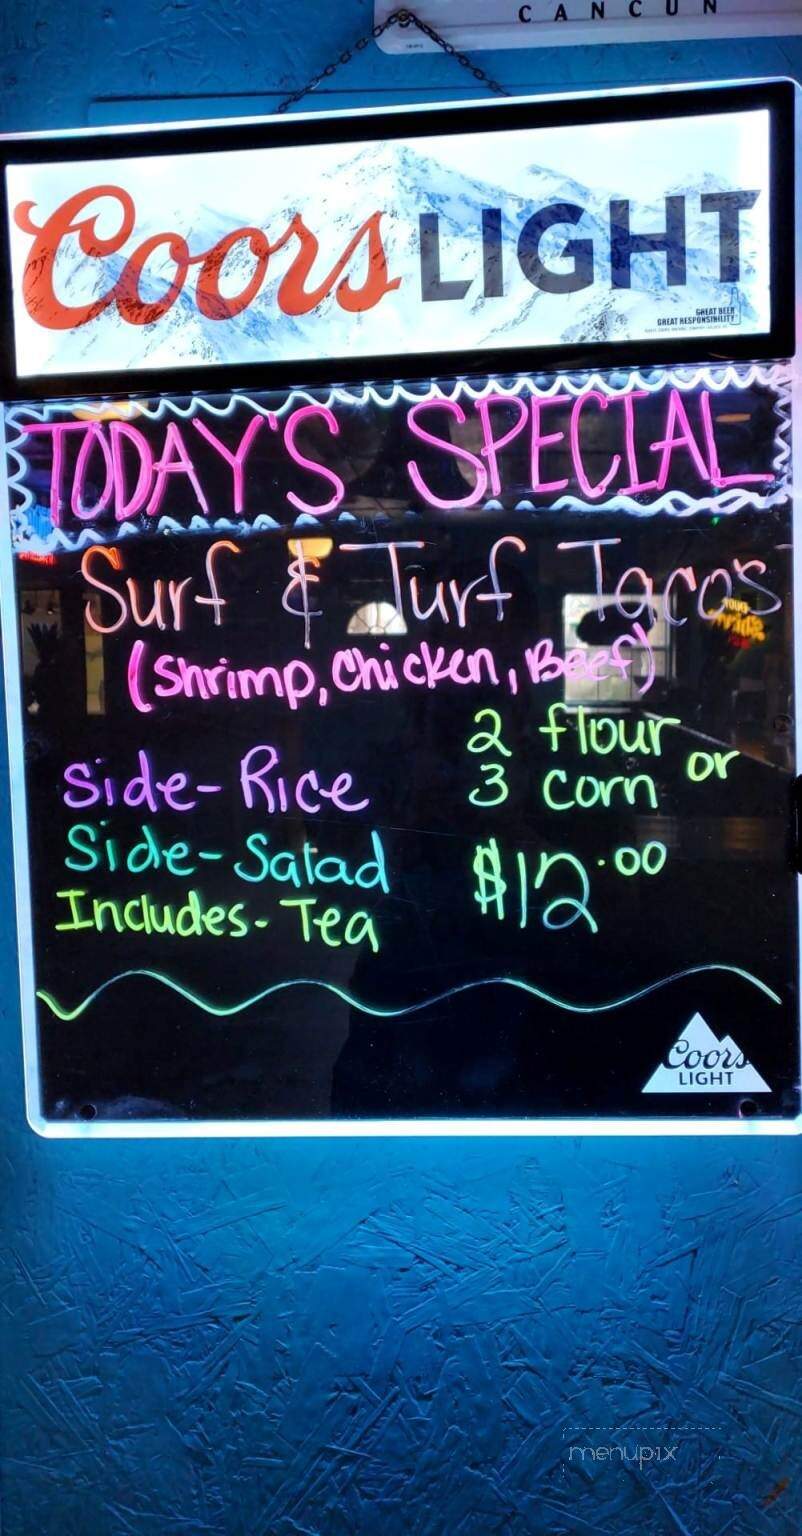 CANCÚN
Coors LIGHT
GREAT BEER
GREAT RESPONSIBILITY
TODAY'S SPECIAL
Surf & Turf Tacos
(Shrimp, Chicken, Beef)
2 flour or
3 corn
Side-Rice
Side-Salad
Includes-Tea
$12.00
Coors
LIGHT
menupix